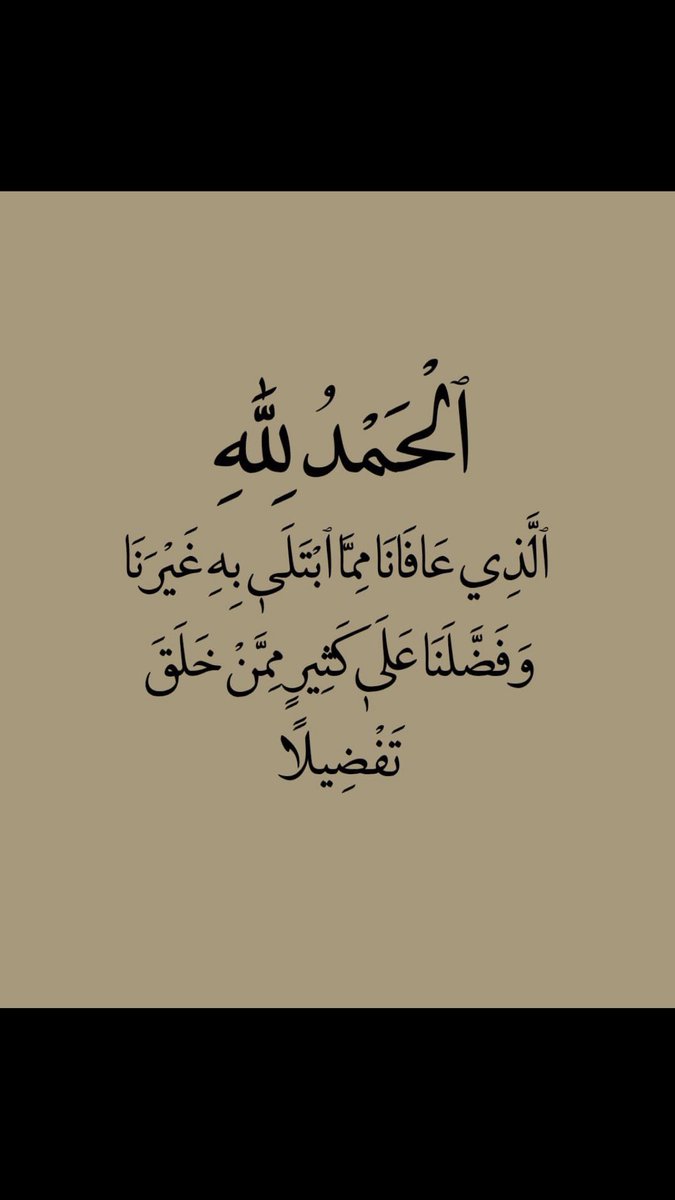 ٱلْحَمْدُ لِلَّٰهِ
ٱلَّذِي عَافَانَا مِمَّا ٱبْتَلَىٰ بِهِ غَيْرَنَا
وَفَضَّلَنَا عَلَىٰ كَثِيرٍ مِمَّنْ خَلَقَ
تَفْضِيلًا